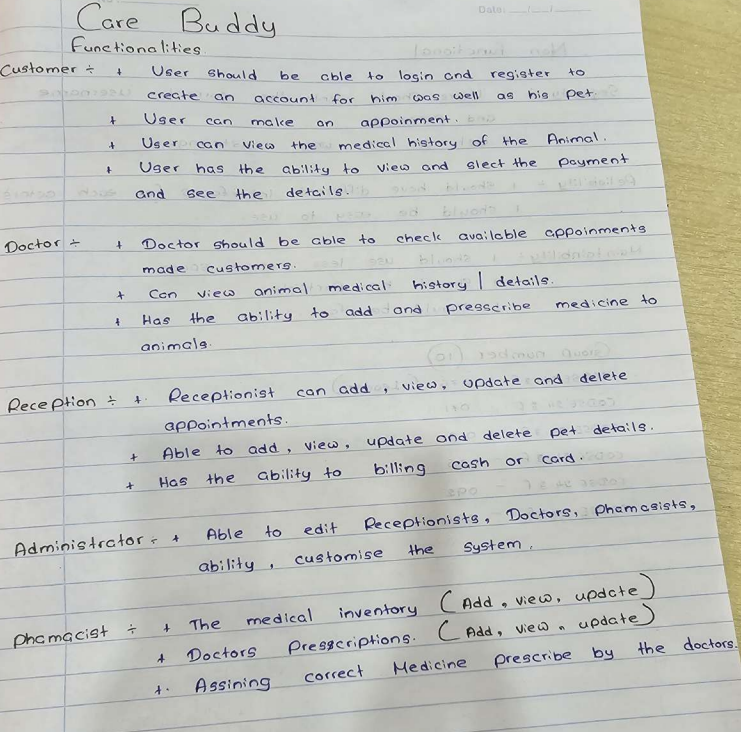 Date:
Care Buddy
Functionalities
Customer ÷ + User should be able to login and register to
create an account for him was well as his pet
+ User can make an appoinment.
+ User can view the medical history of the Animal.
+ User has the ability to view and slect the payment
and see the details.
Doctor ÷ + Doctor should be able to check available appoinments
made customers.
+ Can view animal medical history / details.
+ Has the ability to add and presscribe medicine to
animals.
Reception ÷ +. Receptionist can add, view, update and delete
appointments.
+ Able to add, view, update and delete pet details.
+ Has the ability to billing cash or card.
Administrator ÷ + Able to edit Receptionists, Doctors, phamasists,
ability, customise the system.
phamacist ÷ + The medical inventory (Add, view, update)
+ Doctors Presscriptions. (Add, view, update)
+. Assining correct Medicine prescribe by the doctors.